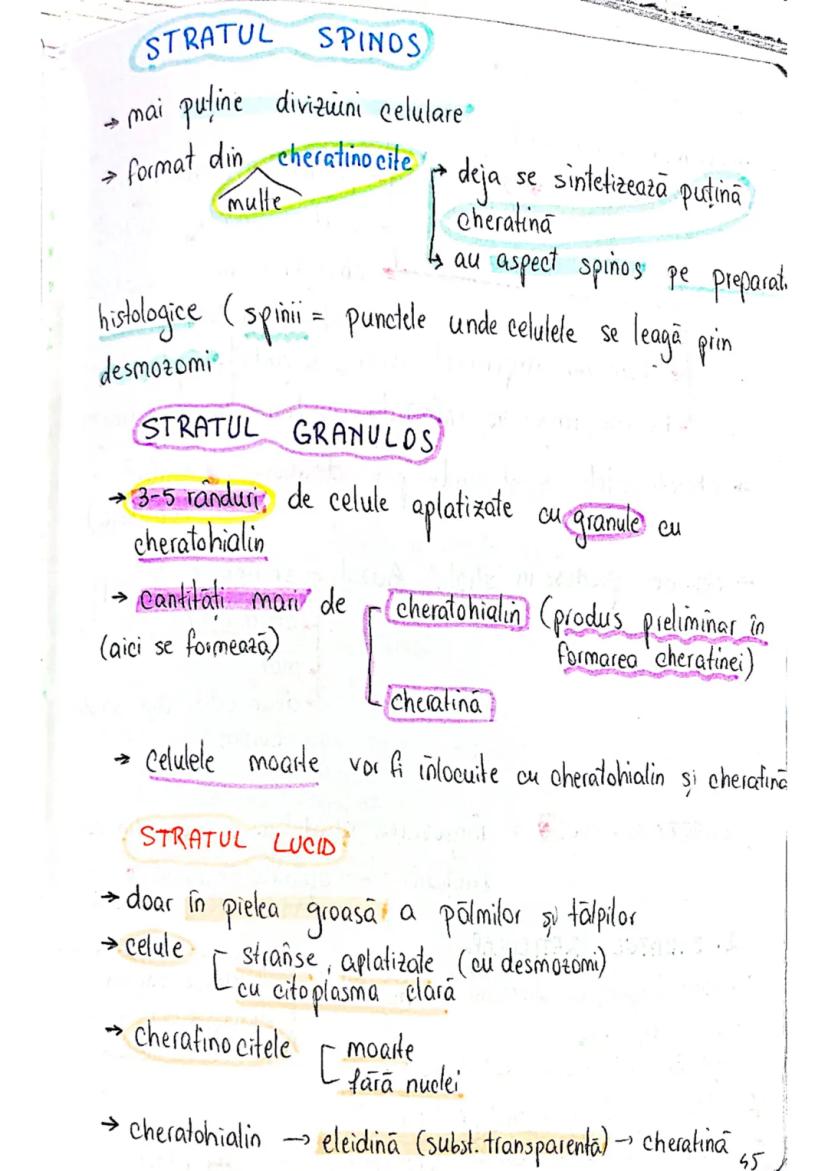 STRATUL SPINOS
→ mai puține diviziuni celulare
→ format din cheratinocite
multe
→ deja se sintetizează puțină
cheratină
→ au aspect spinos pe preparat.
histologice (spinii = punctele unde celulele se leagă prin
desmozomi
STRATUL GRANULOS
→ 3-5 rânduri de celule aplatizate cu granule cu
cheratohialin
→ cantități mari de cheratohialin (produs preliminar în
(aici se formează) formarea cheratinei)
cheratină
→ celulele moarte vor fi înlocuite cu cheratohialin și cheratină
STRATUL LUCID
→ doar în pielea groasă a pălmilor și tălpilor
→ celule strânse, aplatizate (cu desmozomi)
cu citoplasma clară
→ Cheratinocitele moarte
fără nuclei
→ cheratohialin → eleidină (subst. transparentă) → cheratină
45